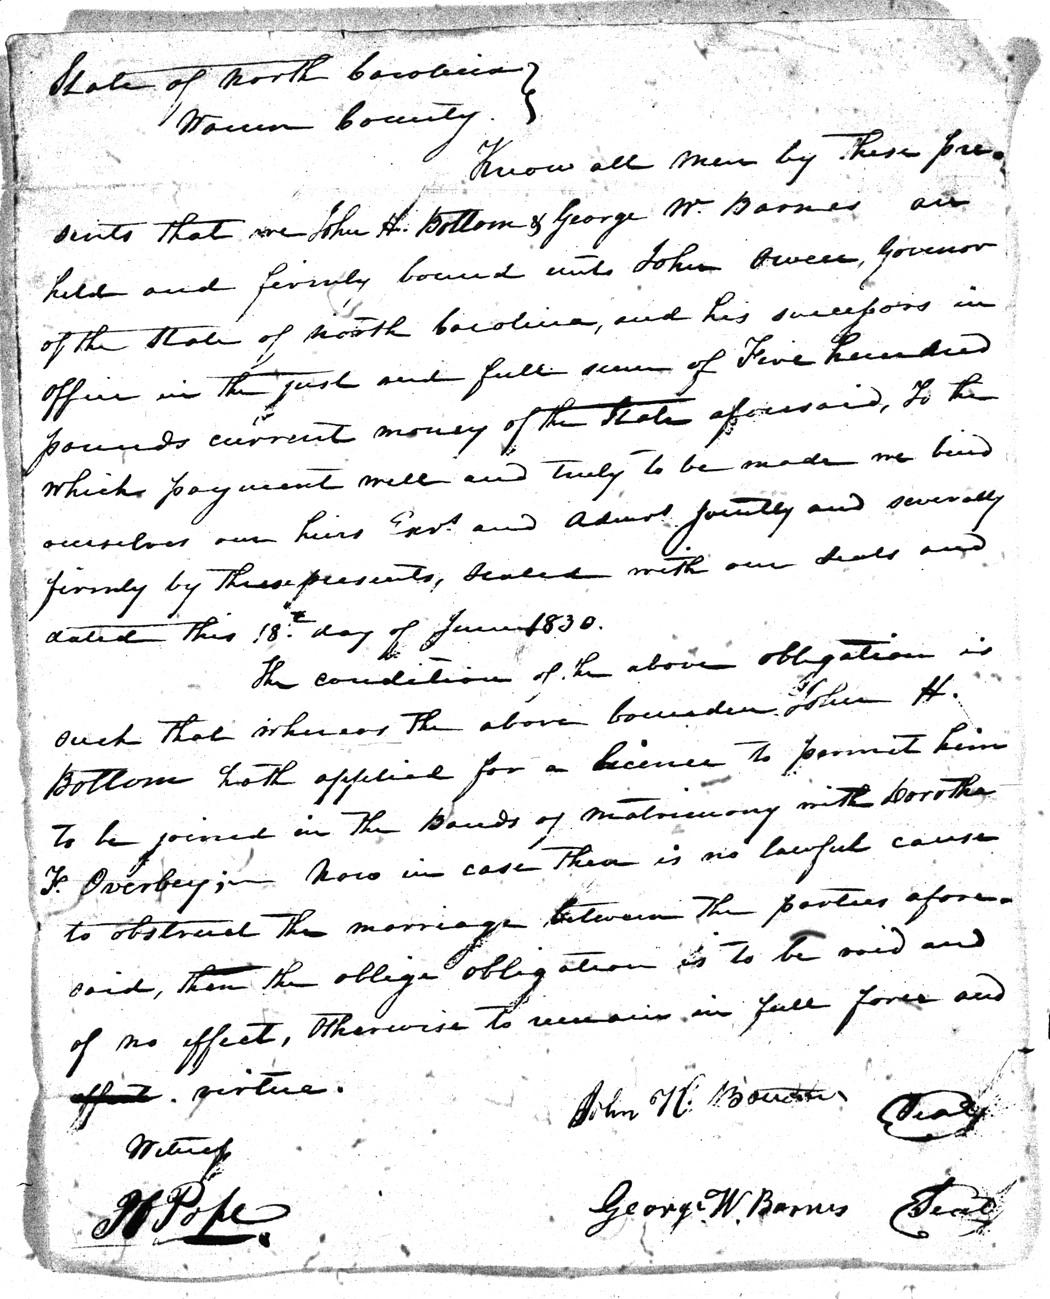 State of North Carolina }
Warren County.
Know all Men by these pre-
sents that we John H. Bottom & George W. Barnes are
held and firmly bound unto John Owen, Govenor
of the State of North Carolina, and his successors in
office in the just and full sum of Five hundred
pounds current money of the State aforesaid, To the
which payment well and truly to be made we bind
ourselves our heirs Exrs and Admrs Jointly and severally
firmly by these presents, sealed with our seals and
dated this 18th day of June 1830.
The condition of the above obligation is
such that whereas the above bounden John H.
Bottom hath applied for a licence to permit him
to be joined in the Bands of Matrimony with Dorotha
F. Overbey;— Now in case there is no lawful cause
to obstruct the marriage between the parties afore-
said, then the oblige obligation is to be void and
of no effect, Otherwise to remain in full force and
effect. virtue.
John H. Bottom Seal
Witness
George W. Barnes Seal
Pope